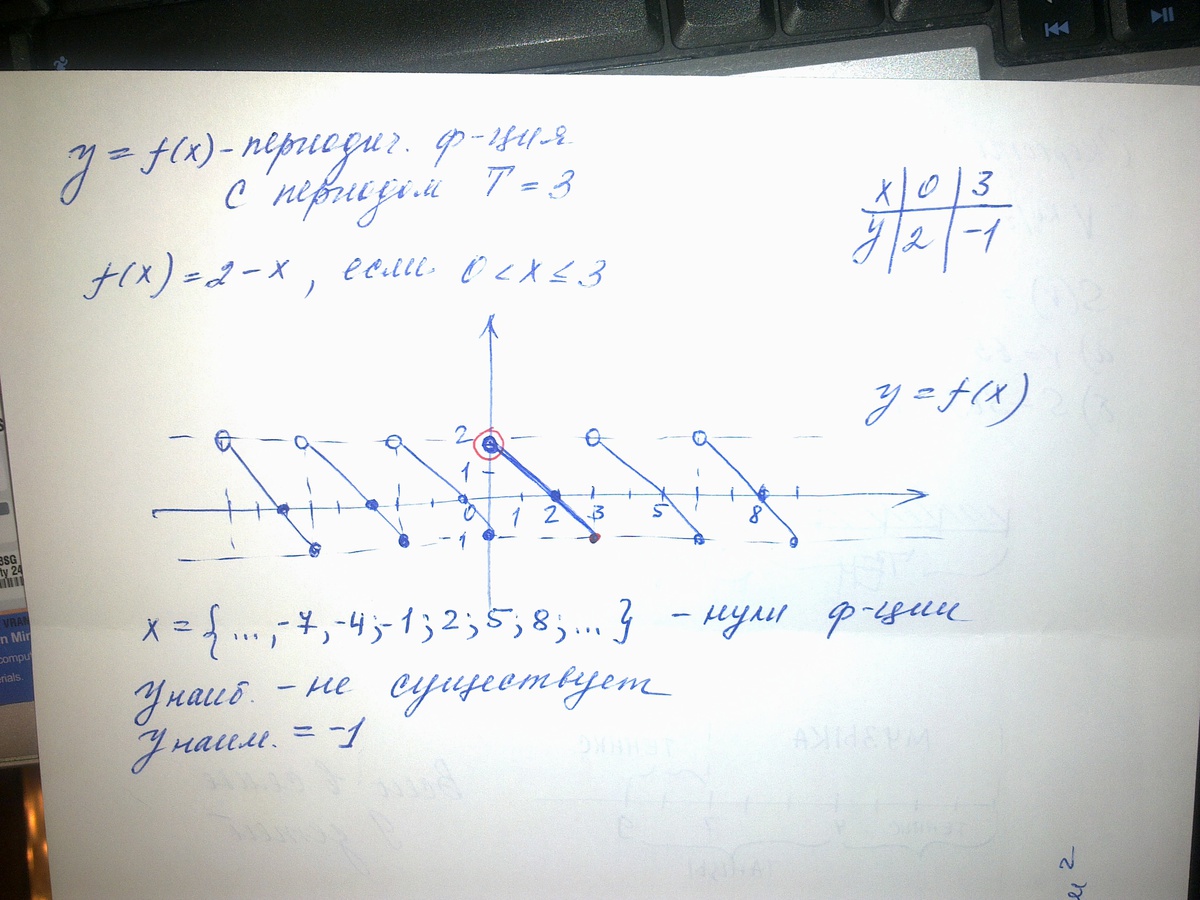 y = f(x) - периодич. ф-ция
с периодом T = 3
x | 0 | 3
y | 2 | -1
f(x) = 2 - x , если 0 < x ≤ 3
y = f(x)
2
1
0 1 2 3 5 8
-1
x = {..., -7, -4; -1; 2; 5; 8; ...} - нули ф-ции
y наиб. - не существует
y наим. = -1